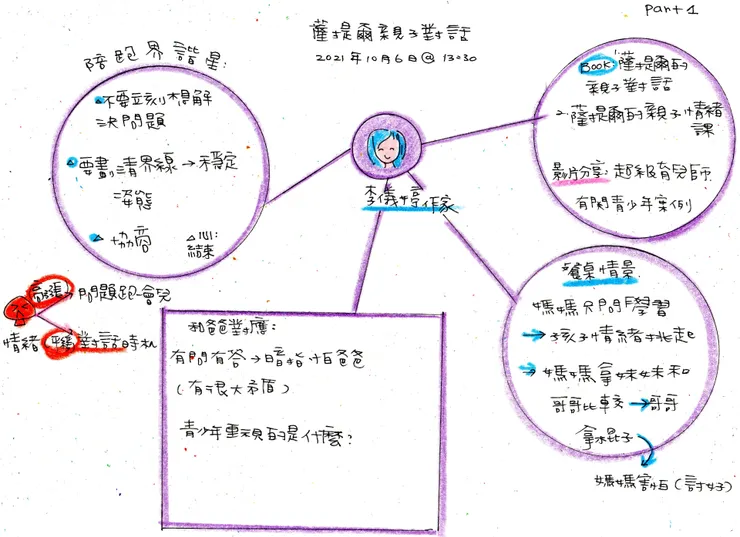 part 1
薩提爾親子對話
2021年10月6日@ 13:30
陪跑界諧星:
不要立刻想解
決問題
要劃清界線→穩定
姿態
協商
結束
李儀婷作家
BOOK: 薩提爾的
親子對話
薩提爾的親子情緒
課
影片分享: 超級育兒師
有関青少年案例
高漲→問問題跑一會兒
情緒 平穩 對話時机
和爸爸對應:
有問有答→暗指怕爸爸
(有很大矛盾)
青少年重視的是什麼?
餐桌情景
媽媽只問學習
→孩子情緒挑起
→媽媽拿妹妹和
哥哥比較→哥哥
拿棍子
媽媽害怕(討好)